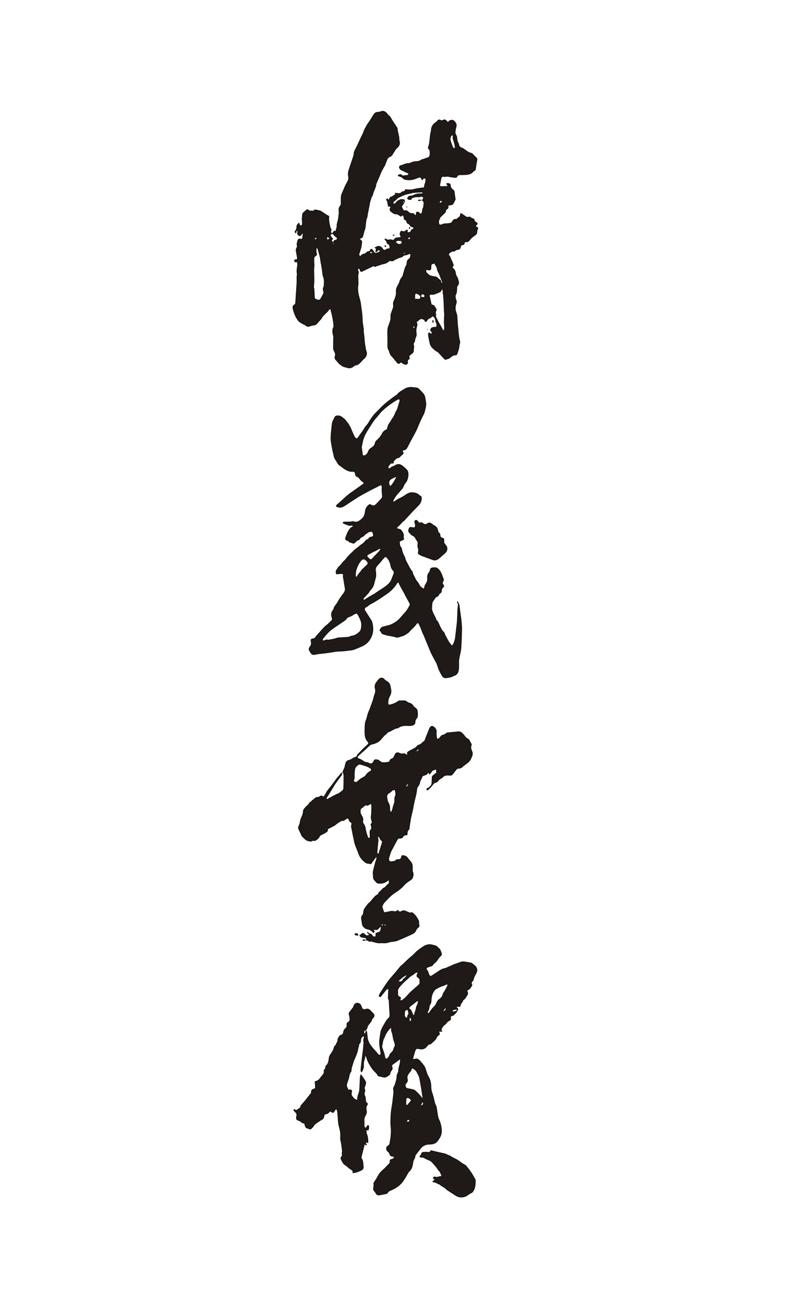 情義無價